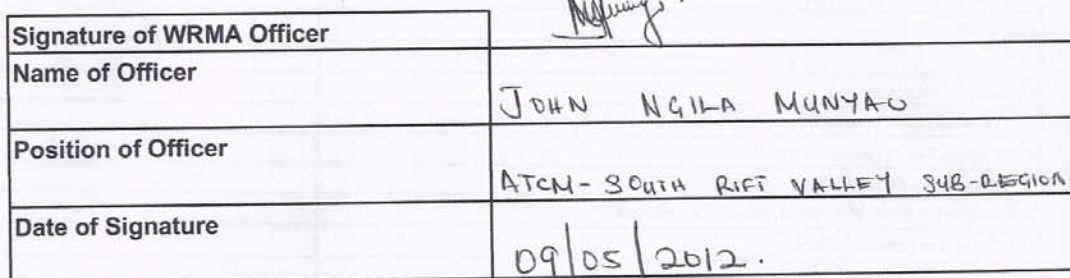 Signature of WRMA Officer
Name of Officer
JOHN NGILA MUNYAO
Position of Officer
ATCM - SOUTH RIFT VALLEY SUB-REGION
Date of Signature
09/05/2012.